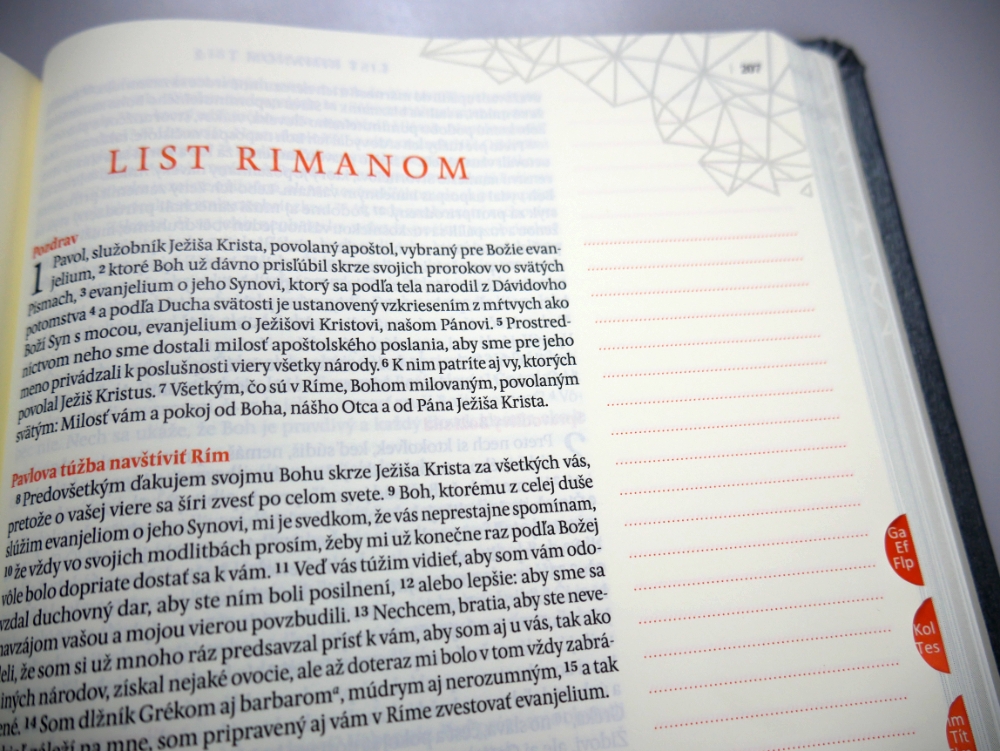 207
LIST RIMANOM
Pozdrav
1 Pavol, služobník Ježiša Krista, povolaný apoštol, vybraný pre Božie evan-
jelium, 2 ktoré Boh už dávno prisľúbil skrze svojich prorokov vo svätých
Písmach, 3 evanjelium o jeho Synovi, ktorý sa podľa tela narodil z Dávidovho
potomstva 4 a podľa Ducha svätosti je ustanovený vzkriesením z mŕtvych ako
Boží Syn s mocou, evanjelium o Ježišovi Kristovi, našom Pánovi. 5 Prostred-
níctvom neho sme dostali milosť apoštolského poslania, aby sme pre jeho
meno privádzali k poslušnosti viery všetky národy. 6 K nim patríte aj vy, ktorých
povolal Ježiš Kristus. 7 Všetkým, čo sú v Ríme, Bohom milovaným, povolaným
svätým: Milosť vám a pokoj od Boha, nášho Otca a od Pána Ježiša Krista.
Pavlova túžba navštíviť Rím
8 Predovšetkým ďakujem svojmu Bohu skrze Ježiša Krista za všetkých vás,
pretože o vašej viere sa šíri zvesť po celom svete. 9 Boh, ktorému z celej duše
slúžim evanjeliom o jeho Synovi, mi je svedkom, že vás neprestajne spomínam,
10 že vždy vo svojich modlitbách prosím, žeby mi už konečne raz podľa Božej
vôle bolo dopriate dostať sa k vám. 11 Veď vás túžim vidieť, aby som vám odo-
vzdal duchovný dar, aby ste ním boli posilnení, 12 alebo lepšie: aby sme sa
navzájom vašou a mojou vierou povzbudili. 13 Nechcem, bratia, aby ste neve-
deli, že som si už mnoho ráz predsavzal prísť k vám, aby som aj u vás, tak ako
iných národov, získal nejaké ovocie, ale až doteraz mi bolo v tom vždy zabrá-
ené. 14 Som dlžník Grékom aj barbaromª, múdrym aj nerozumným, 15 a tak
záleží na mne, som pripravený aj vám v Ríme zvestovať evanjelium.
Ga
Ef
Flp
Kol
Tes
Tít